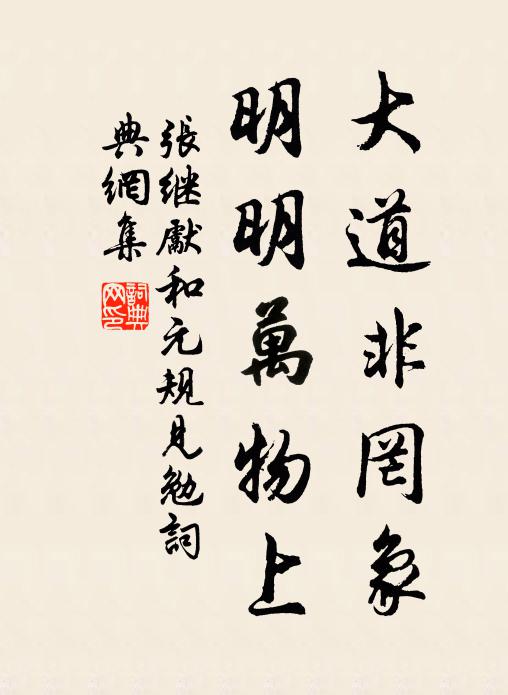 大道非罔象
明明萬物上
張继獻和元規見勉詞
典網集
詞典网印